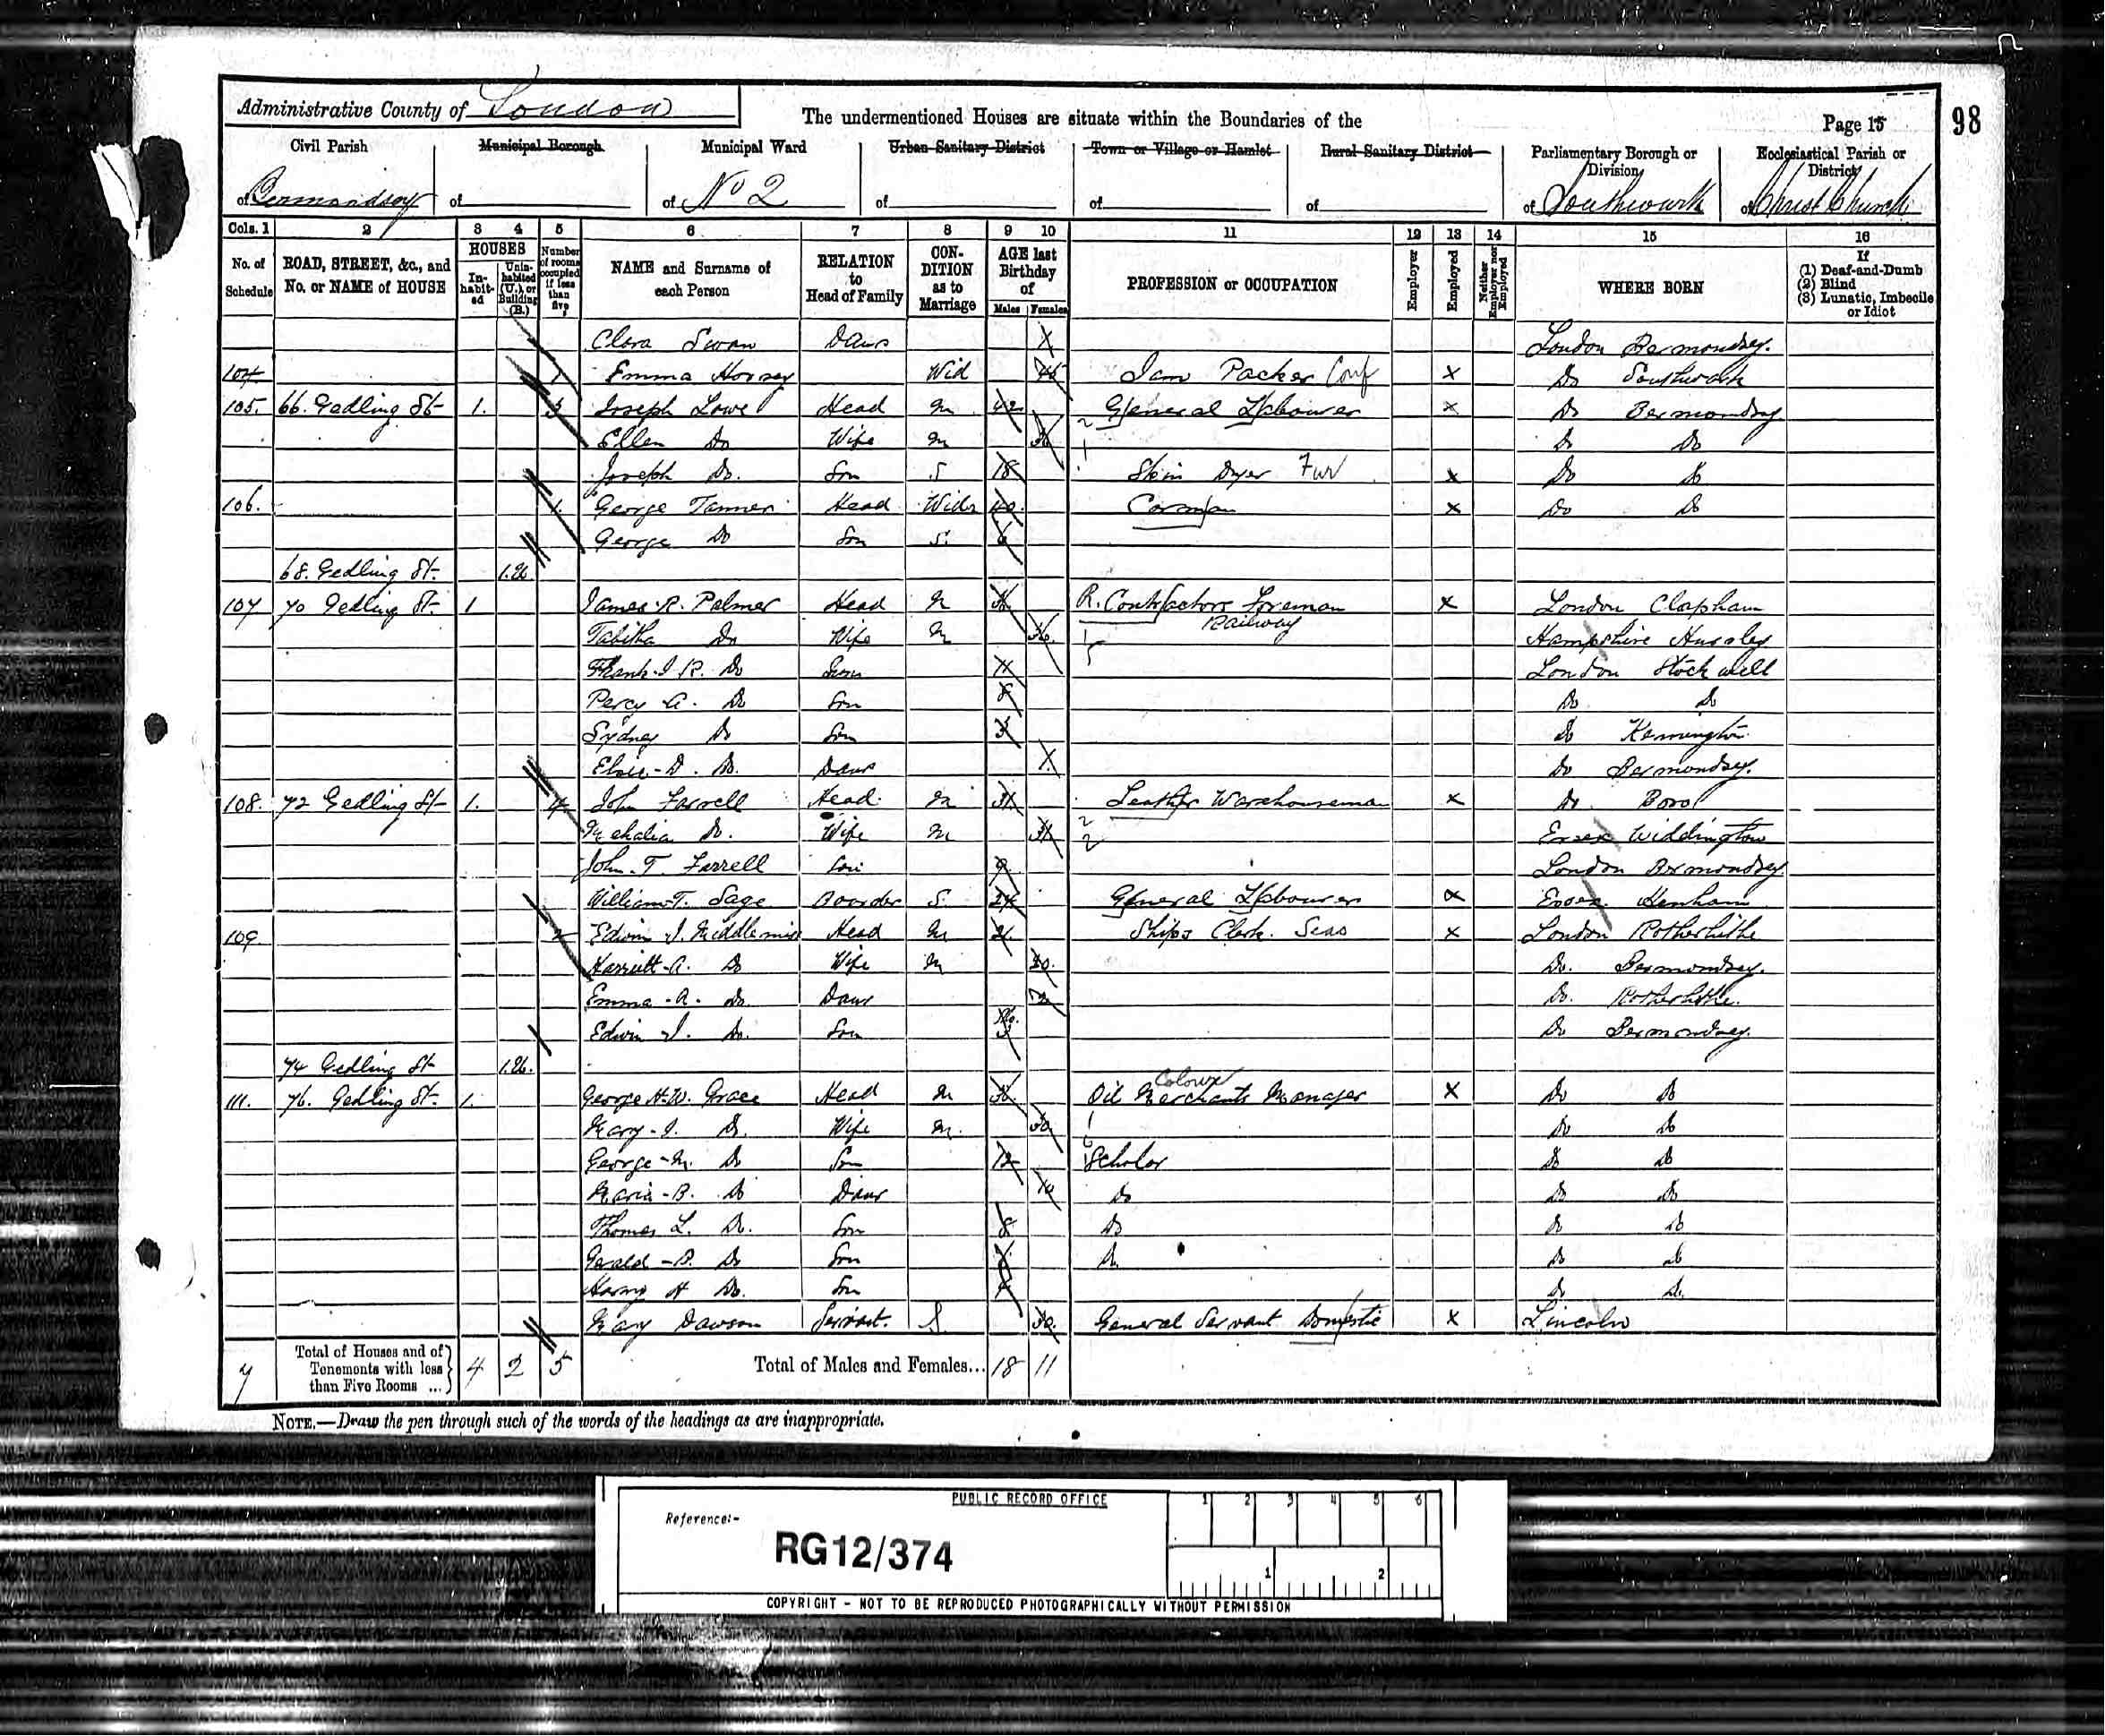 98
Administrative County of London
The undermentioned Houses are situate within the Boundaries of the
Page 15
Civil Parish
of Bermondsey
Municipal Borough
of
Municipal Ward
of No 2
Urban Sanitary District
of
Town or Village or Hamlet
of
Rural Sanitary District
of
Parliamentary Borough or Division
of Southwark
Ecclesiastical Parish or District
of Christ Church
Cols. 1 2 3 4 5 6 7 8 9 10 11 12 13 14 15 16
No. of Schedule
ROAD, STREET, &c., and No. or NAME of HOUSE
HOUSES
In-habit-ed
Unin-habited (U.) or Building (B.)
Number of rooms occupied if less than five
NAME and Surname of each Person
RELATION to Head of Family
CON-DITION as to Marriage
AGE last Birthday of
Males Females
PROFESSION or OCCUPATION
Employer
Employed
Neither Employer nor Employed
WHERE BORN
If
(1) Deaf-and-Dumb
(2) Blind
(3) Lunatic, Imbecile or Idiot
Clara Swan Daur London Bermondsey.
104. 1 Emma Wid Jam Packer Conf X Do Southwark
105. 66. Gedling St 1. 3 Joseph Lowe Head M 42 General Labourer X Do Bermondsey
Ellen Do Wife M Do Do
Joseph Do. Son S 18 Skin Dyer Fur X Do Do
106. 1. George Tanner Head Widr 40. Carman X Do Do
George Do Son S. 6
68. Gedling St. 1.U.
107 70 Gedling St. 1 James R. Palmer Head M R. Contractors Foreman X London Clapham
Railway
Tabitha Do Wife M 36. Hampshire Hursley
Frank J R. Do Son 11 London Stockwell
Percy A. Do Son 8 Do Do
Sydney Do Son Do Kennington
Elsie D. Do. Daur Do Bermondsey.
108. 72 Gedling St 1. 4 John Farrell Head M Leather Warehouseman X Do. Boro
Mehalia Do. Wife M Essex Widdington
John. T. Farrell Son 9 London Bermondsey
William T. Sage Boarder S. 24 General Labourer X Essex Henham
109. 2 Edwin J. Middlemiss Head M Ships Clerk. Seas X London Rotherhithe
Harriett A. Do Wife M 20. Do. Bermondsey.
Emma A. Do Daur Do. Rotherhithe.
Edwin J. Do. Son Mo. Do Bermondsey.
74 Gedling St 1.U.
111. 76. Gedling St. 1. George H.W. Grace Head M Oil Colour Merchants Manager X Do Do
Mary J. Do. Wife M. Do Do
George M. Do Son 12 Scholar Do Do
Maria B. Do Daur 10 Do Do Do
Thomas L. Do. Son 8 Do Do Do
Gerald B. Do Son Do. Do Do
Harry H Do. Son Do Do.
Mary Dawson Servant. S. General Servant Domestic X Lincoln
7
Total of Houses and of Tenements with less than Five Rooms ...
4 2 5
Total of Males and Females... 18 11
NOTE.—Draw the pen through such of the words of the headings as are inappropriate.
PUBLIC RECORD OFFICE
1 2 3 4 5 6
Reference:-
RG12/374
1 2
COPYRIGHT - NOT TO BE REPRODUCED PHOTOGRAPHICALLY WITHOUT PERMISSION